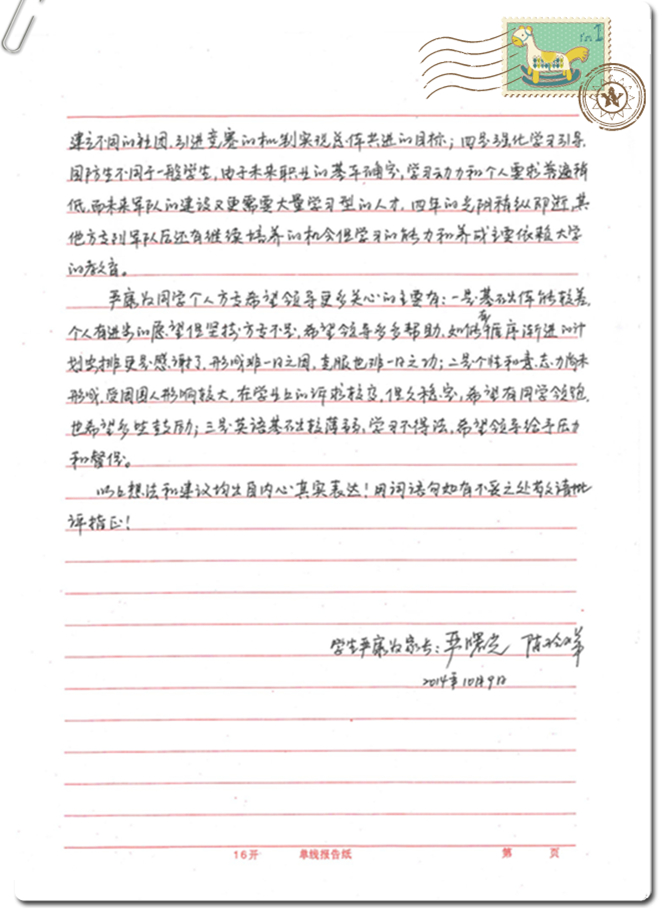 建立不同的社团,引进竞赛的机制实现总体共进的目标;四是强化学习引导,
国防生不同于一般学生,由于未来职业的基本确定,学习动力和个人要求普遍稍
低,而未来军队的建设又更需要大量学习型的人才,四年的光阴稍纵即逝,其
他方面到军队后还有继续培养的机会但学习的能力和养成主要依赖大学
的教育。
严康为同学个人方面希望领导更多关心的主要有:一是基础体能较差,
个人有进步的愿望但坚持方面不足,希望领导多多帮助,如能有循序渐进的计
划安排更是感谢了,形成非一日之因,克服也非一日之功;二是个性和意志力尚未
形成,受周围人影响较大,在学业上的诉求较高,但欠稳定,希望有同学领跑,
也希望多些鼓励;三是英语基础较薄弱,学习不得法,希望领导给予压力
和督促。
以上想法和建议均出自内心真实表达!用词语句如有不妥之处敬请批
评指正!
学生严康为家长:严曙定 陈
2014年10月9日
16开 单线报告纸 第 页